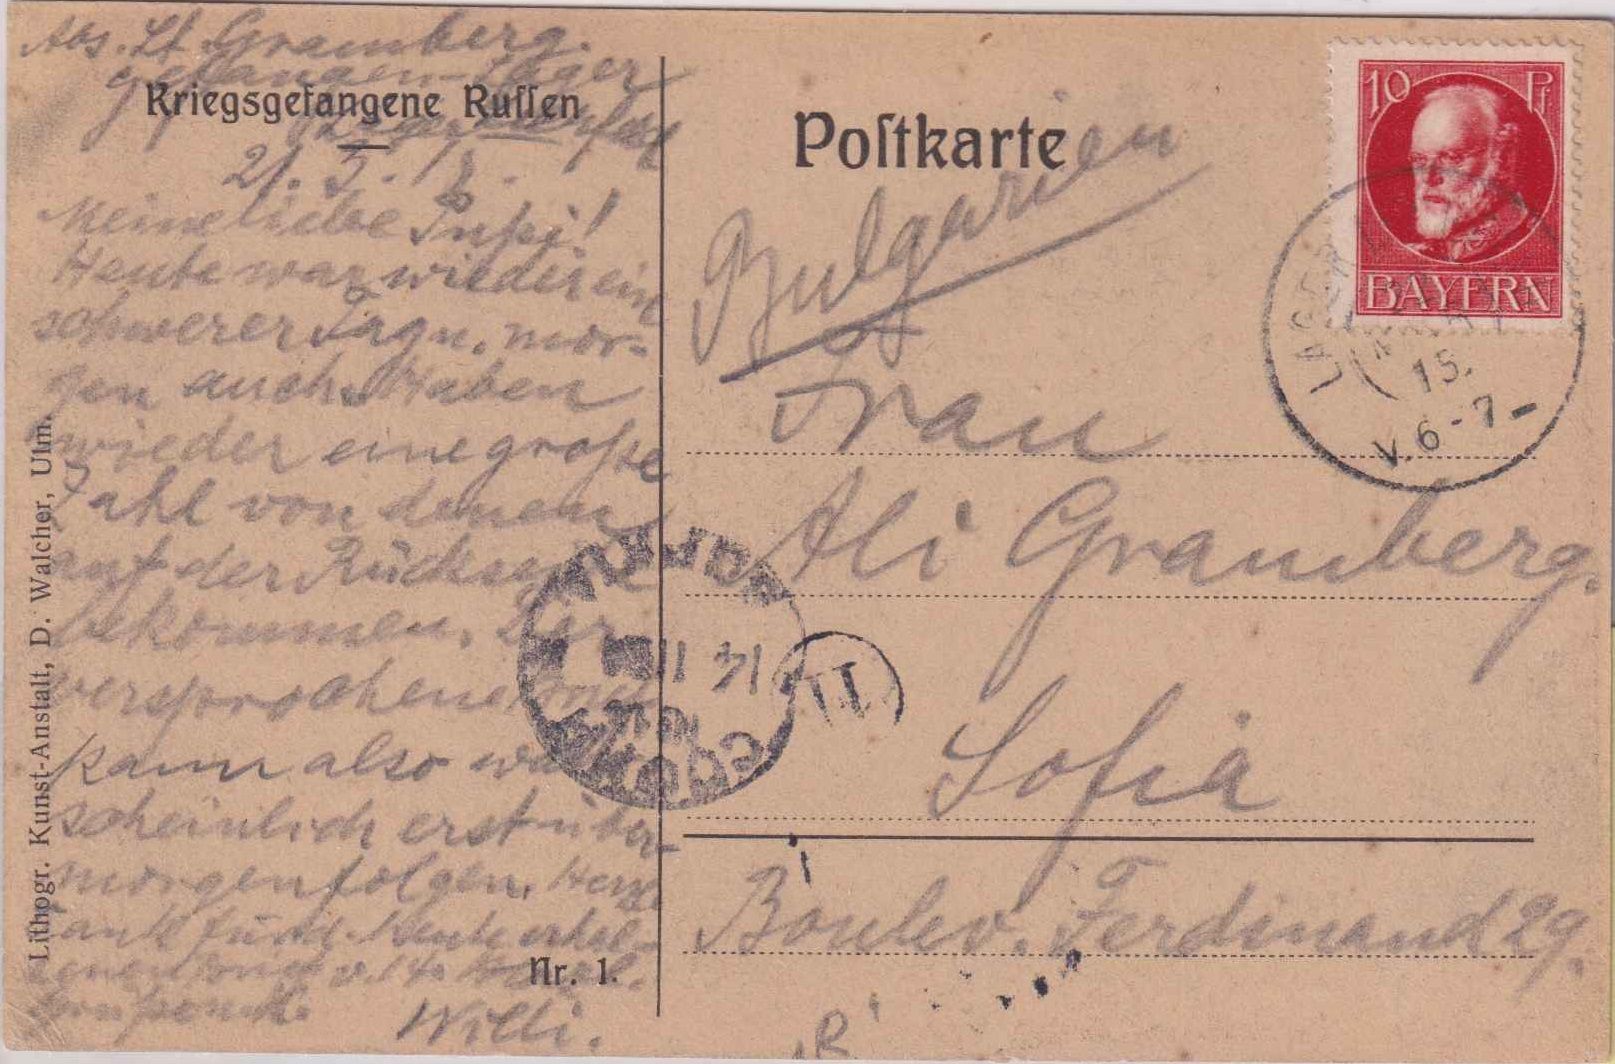 Abs. Lt. Gramberg.
Gefangen-Lager
Kriegsgefangene Russen
21. 5. 15.
Meine liebe
Heute war wieder ein
schwerer Tag u. mor-
gen auch. Haben
wieder eine große
Zahl von denen
auf der Rückseite
bekommen. Der
versprochene Brief
kann also wahr-
scheinlich erst über-
morgen folgen. Herzl.
Dank für d. heute erhal-
tenen Brief v. 14.
Willi.
Nr. 1.
Lithogr. Kunst-Anstalt, D. Walcher, Ulm.
Postkarte
Bulgarien
Frau
Ali Gramberg.
Sofia
Boulev. Ferdinand 29.
10 Pf
BAYERN
15.
V. 6-7-
14
II
R